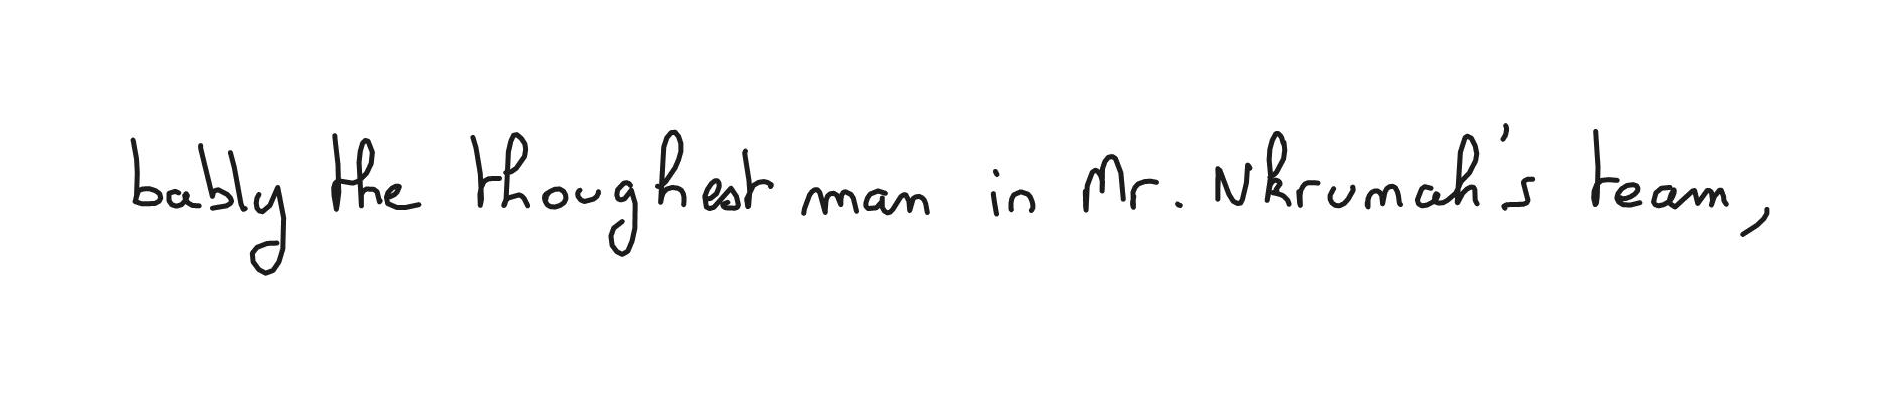 bably the thoughest man in Mr. Nkrumah's team,